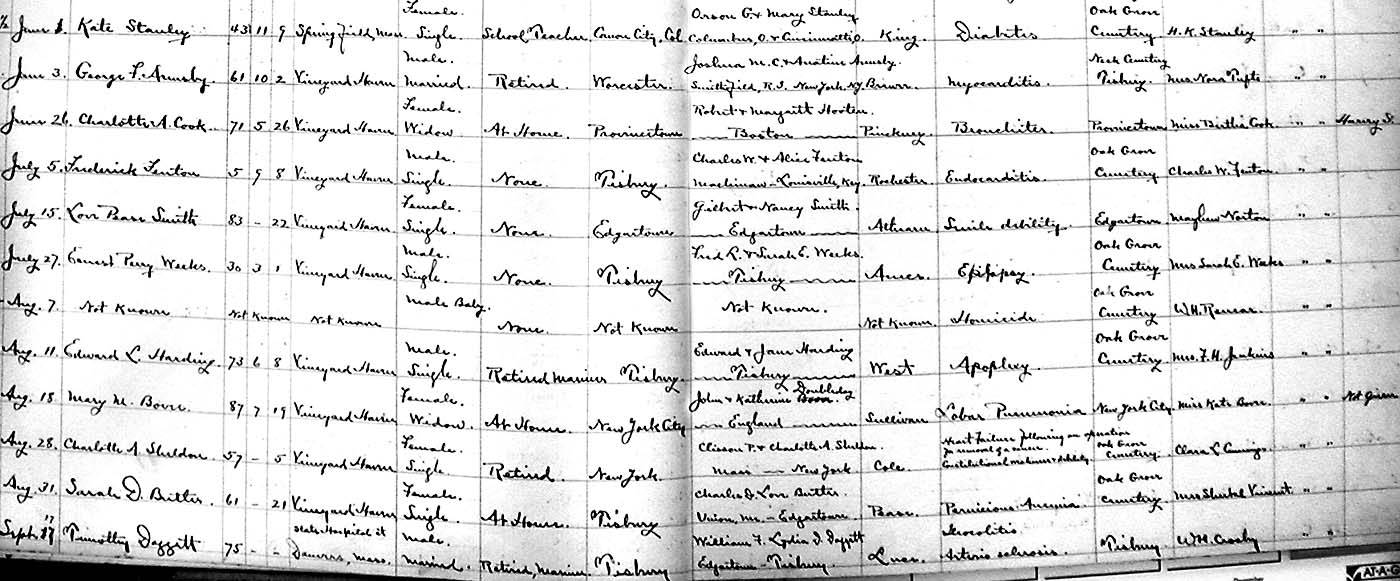 Female. Orson G. & Mary Stanley Oak Grove
½ June 1. Kate Stanley 43 11 9 Springfield, Mass Single. School Teacher. Canon City, Col. Columbus, O. & Cincinnatti, O. King. Diabetes Cemetery H. K. Stanley " "
Male. Joshua M. C. & Armsby. Neck Cemetery
June 3. George F. Armsby. 61 10 2 Vineyard Haven Married. Retired. Worcester. Smithfield, R.I. New York. N.Y. Myocarditis. Tisbury. Mrs. Nora " "
Female. Robert & Margaret Hooten.
June 26. Charlotte A. Cook. 71 5 26 Vineyard Haven Widow. At Home. Provincetown Boston Pinckney. Bronchitis. Provincetown Miss Bertha Cook. " "
Male. Charles W. & Alice Fenton Oak Grove
July 5. Frederick Fenton 5 9 8 Vineyard Haven Single. None. Tisbury. Mackinaw - Louisville, Key. Rochester. Endocarditis. Cemetery Charles W. Fenton. " "
Female. Gilbert & Nancy Smith.
July 15. Love Pease Smith 83 - 22 Vineyard Haven Single. None. Edgartown Edgartown Senile debility. Edgartown Mayhew Norton " "
Male. Fred R. & Sarah E. Weeks. Oak Grove
July 27. Ernest Perry Weeks. 30 3 1 Vineyard Haven Single. None. Tisbury Tisbury Ames. Epilepsy. Cemetery Mrs Sarah E. Weeks " "
Male Baby. Oak Grove
Aug. 7. Not Known Not Known Not Known None. Not Known Not Known. Not Known. Homicide Cemetery W. H. " "
Male. Edward & Jane Harding Oak Grove
Aug. 11. Edward L. Harding. 73 6 8 Vineyard Haven Single. Retired Mariner Tisbury. Tisbury West Apoplexy. Cemetery. Mrs. F. H. Jenkins " "
Female. John & Katherine Doubleday
Aug. 18. Mary M. Bovee. 87 7 19 Vineyard Haven Widow. At Home. New York City England Sullivan Lobar Pneumonia New York City. Miss Kate Bovee. " " Not Given
Female. Clisson P. & Charlotte A. Sheldon. Heart Failure following an operation
Aug. 28. Charlotte A. Sheldon. 57 - 5 Vineyard Haven Single. Retired. New York. Mass - New York Cole. for removal of a cancer. Constitutional weakness & debility. Oak Grove Cemetery. Clara L. " "
Female. Charles & Love Butler. Oak Grove
Aug. 31. Sarah D. Butler. 61 - 21 Vineyard Haven Single. At Home. Tisbury Union, Me. - Edgartown. Pernicious Anemia Cemetery. Vincent. " "
State Hospital at Male. William F. Lydia D. Daggett
Sept. 17 Timothy Daggett 75 - - Danvers, Mass. Married. Retired, Mariner Tisbury Edgartown - Tisbury. Luce. Arterio sclerosis. Tisbury W. H. Crosby " "